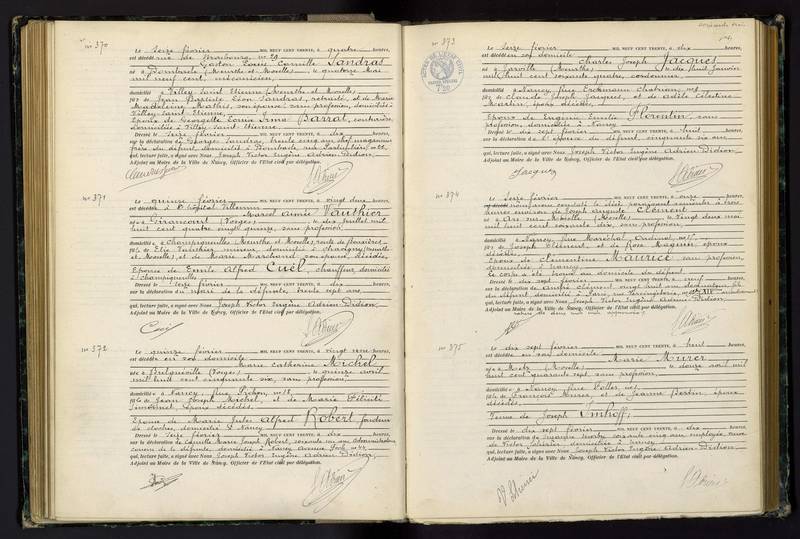 N° 370
Le Seize février MIL NEUF CENT TRENTE, à quatre heures,
est décédé rue de Strasbourg n° 29
Gaston Louis Camille Sandras
né à Dombasle (Meurthe et Moselle) le quatorze Mai
mil neuf cent, mécanicien,
domicilié à Villey Saint Etienne (Meurthe et Moselle)
fils de Jean Baptiste Léon Sandras, retraité, et de Marie
Madeleine Mathis, son épouse, sans profession, domiciliés à
Villey Saint Etienne,
Epoux de Georgette Irma Barrat, couturière,
domiciliée à Villey Saint Etienne.
Dressé le Seize février, à dix heures,
sur la déclaration de Georges Sandras, trente cinq ans, chef magasinier,
frère du défunt, domicilié à Dombasle, rue
qui, lecture faite, a signé avec Nous Joseph Victor Eugène Adrien Didion,
Adjoint au Maire de la Ville de Nancy, Officier de l'Etat civil par délégation.
N° 371
Le quinze février MIL NEUF CENT TRENTE, à vingt deux heures,
est décédée à l'hôpital Villemin
Marcel Aimée Vauthier
née à Girancourt (Vosges) le dix juillet mil
huit cent quatre vingt quinze, sans profession,
domiciliée à Champigneulles (Meurthe et Moselle), route de
fille de Elie Vauthier, mineur, domicilié à Chavigny (Meurthe
et Moselle), et de Marie Marchand, son épouse, décédée.
Epouse de Emile Alfred Cuel, chauffeur, domicilié
à Champigneulles
Dressé le Seize février, à dix heures,
sur la déclaration du mari de la défunte, trente sept ans
qui, lecture faite, a signé avec Nous Joseph Victor Eugène Adrien Didion,
Adjoint au Maire de la Ville de Nancy, Officier de l'Etat civil par délégation.
N° 372
Le quinze février MIL NEUF CENT TRENTE, à vingt une heures,
est décédée en son domicile
Marie Catherine Michel
née à (Vosges) le quinze avril
mil huit cent cinquante six, sans profession,
domiciliée à Nancy, rue Pichon, n° 18
fille de Jean Joseph Michel, et de Marie Félicité
époux décédés.
Epouse de Marie Jules Alfred Robert, fondeur
de cloches, domicilié à Nancy
Dressé le Seize février, à dix heures,
sur la déclaration de Camille Marie Joseph Robert, soixante six ans, administrateur,
cousin de la défunte, domicilié à Nancy, Avenue Foch, n° 42
qui, lecture faite, a signé avec Nous Joseph Victor Eugène Adrien Didion,
Adjoint au Maire de la Ville de Nancy, Officier de l'Etat civil par délégation.
N° 373
Le Seize février MIL NEUF CENT TRENTE, à dix heures,
est décédé en son domicile
Charles Joseph Jacques
né à Jarville (Meurthe) le dix huit janvier
mil huit cent soixante quatre, cordonnier,
domicilié à Nancy, rue Erckmann Chatrian, n° 8
fils de Claude Joseph Jacques, et de Adèle Célestine
Martin, époux décédés.
Epoux de Eugénie Emilie Florentin, sans
profession, domiciliée à Nancy
Dressé le dix sept février, à huit heures,
sur la déclaration de l'épouse du défunt, cinquante six ans
qui, lecture faite, a signé avec Nous Joseph Victor Eugène Adrien Didion,
Adjoint au Maire de la Ville de Nancy, Officier de l'Etat civil par délégation.
Jacques
N° 374
Le Seize février MIL NEUF CENT TRENTE, à onze heures,
nous avons constaté le décès paraissant remonter à trois
heures environ de Joseph Auguste Clément
né à Ars sur Moselle (Moselle) le vingt deux mai
mil huit cent soixante dix, sans profession,
domicilié à Nancy, rue Maréchal Oudinot, n°
fils de Joseph Clément, et de Rose Maguin, époux
décédés.
Epoux de Clémentine Maurice, sans profession,
domiciliée à Nancy
Le corps a été trouvé au domicile du défunt
Dressé le dix sept février, à neuf heures,
sur la déclaration de André Clément, vingt huit ans, fils
du défunt, domicilié à Paris, rue
qui, lecture faite, a signé avec Nous Joseph Victor Eugène Adrien Didion,
Adjoint au Maire de la Ville de Nancy, Officier de l'Etat civil par délégation.
N° 375
Le dix sept février MIL NEUF CENT TRENTE, à huit heures,
est décédée en son domicile
Marie Murer
née à Metz (Moselle) le douze avril mil
huit cent quarante sept, sans profession,
domiciliée à Nancy, rue Poller, n°
fille de François Murer, et de Jeanne Bertin, époux
décédés.
Veuve de Joseph Imhoff,
Dressé le dix sept février, à dix heures,
sur la déclaration de soixante cinq ans, employée, veuve
de Victor domiciliée à Nancy
qui, lecture faite, a signé avec Nous Joseph Victor Eugène Adrien Didion,
Adjoint au Maire de la Ville de Nancy, Officier de l'Etat civil par délégation.